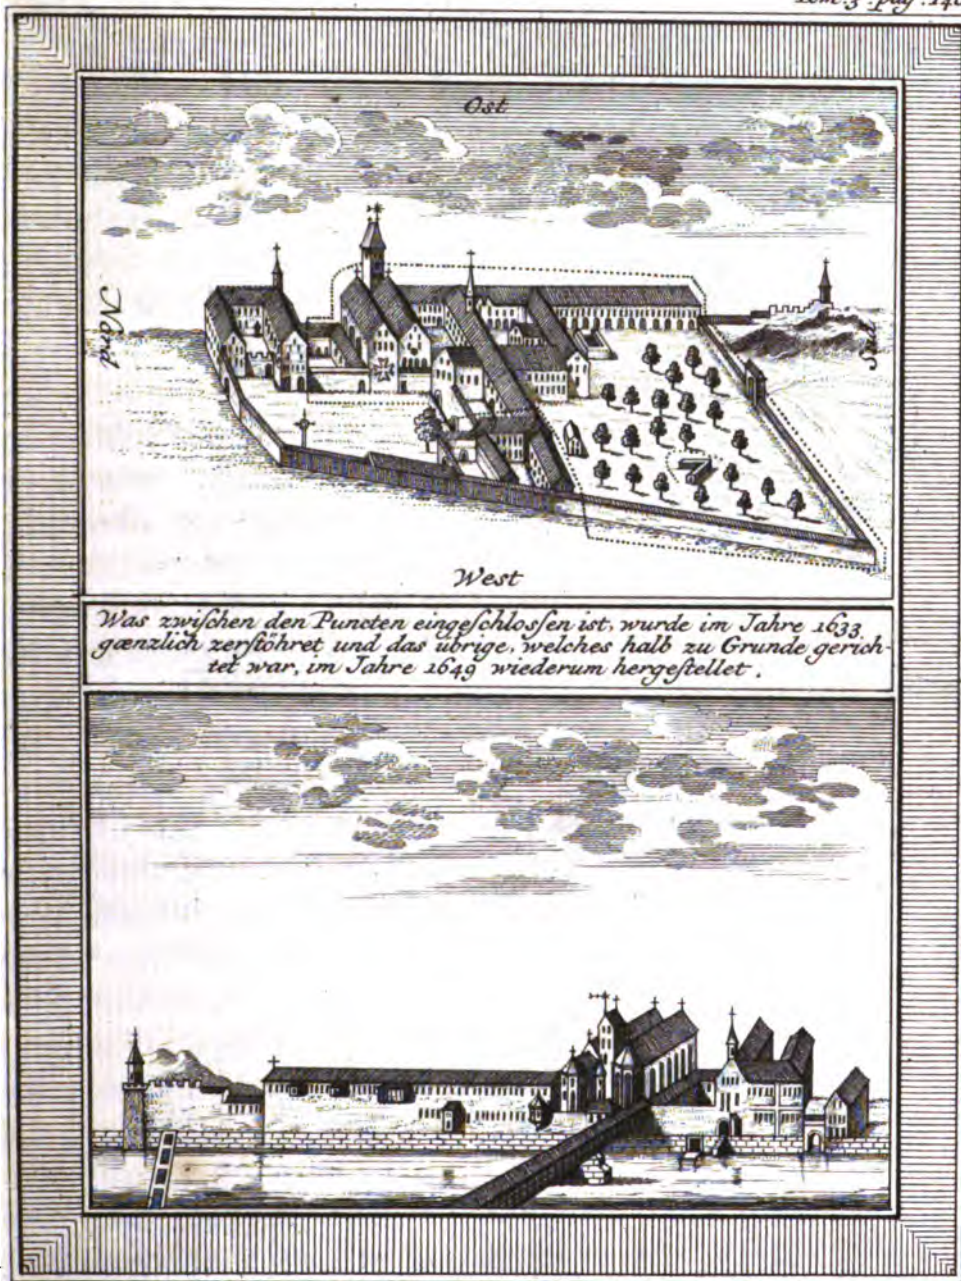 Tom. 3. pag. 
Ost
Nord
Sud
West
Was zwiſchen den Puncten eingeſchloſſen ist, wurde im Jahre 1633
gænzlich zerſtöhret und das übrige, welches halb zu Grunde gerich-
tet war, im Jahre 1649 wiederum hergeſtellet.